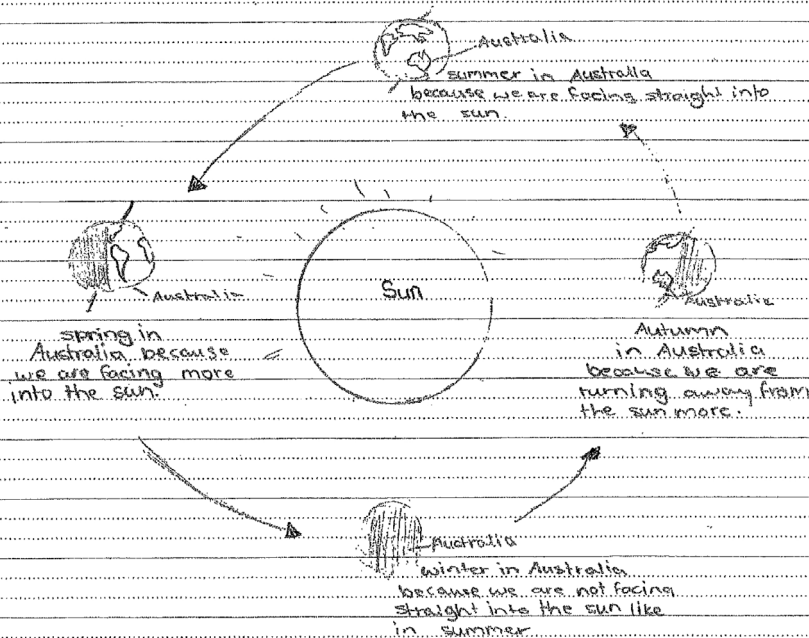 Australia
summer in Australia
because we are facing straight into
the sun.
Sun
Australia
spring in
Australia because
we are facing more
into the sun.
Australia
Autumn
in Australia
because we are
turning away from
the sun more.
Australia
winter in Australia
because we are not facing
straight into the sun like
in summer